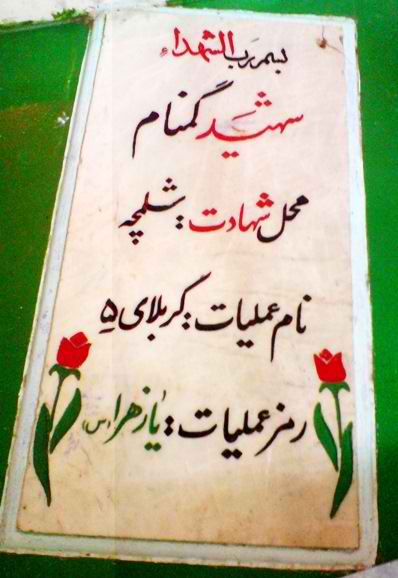 بسم رب الشهداء
شهید گمنام
محل شهادت: شلمچه
نام عملیات: کربلای ۵
رمز عملیات: یا زهرا (س)